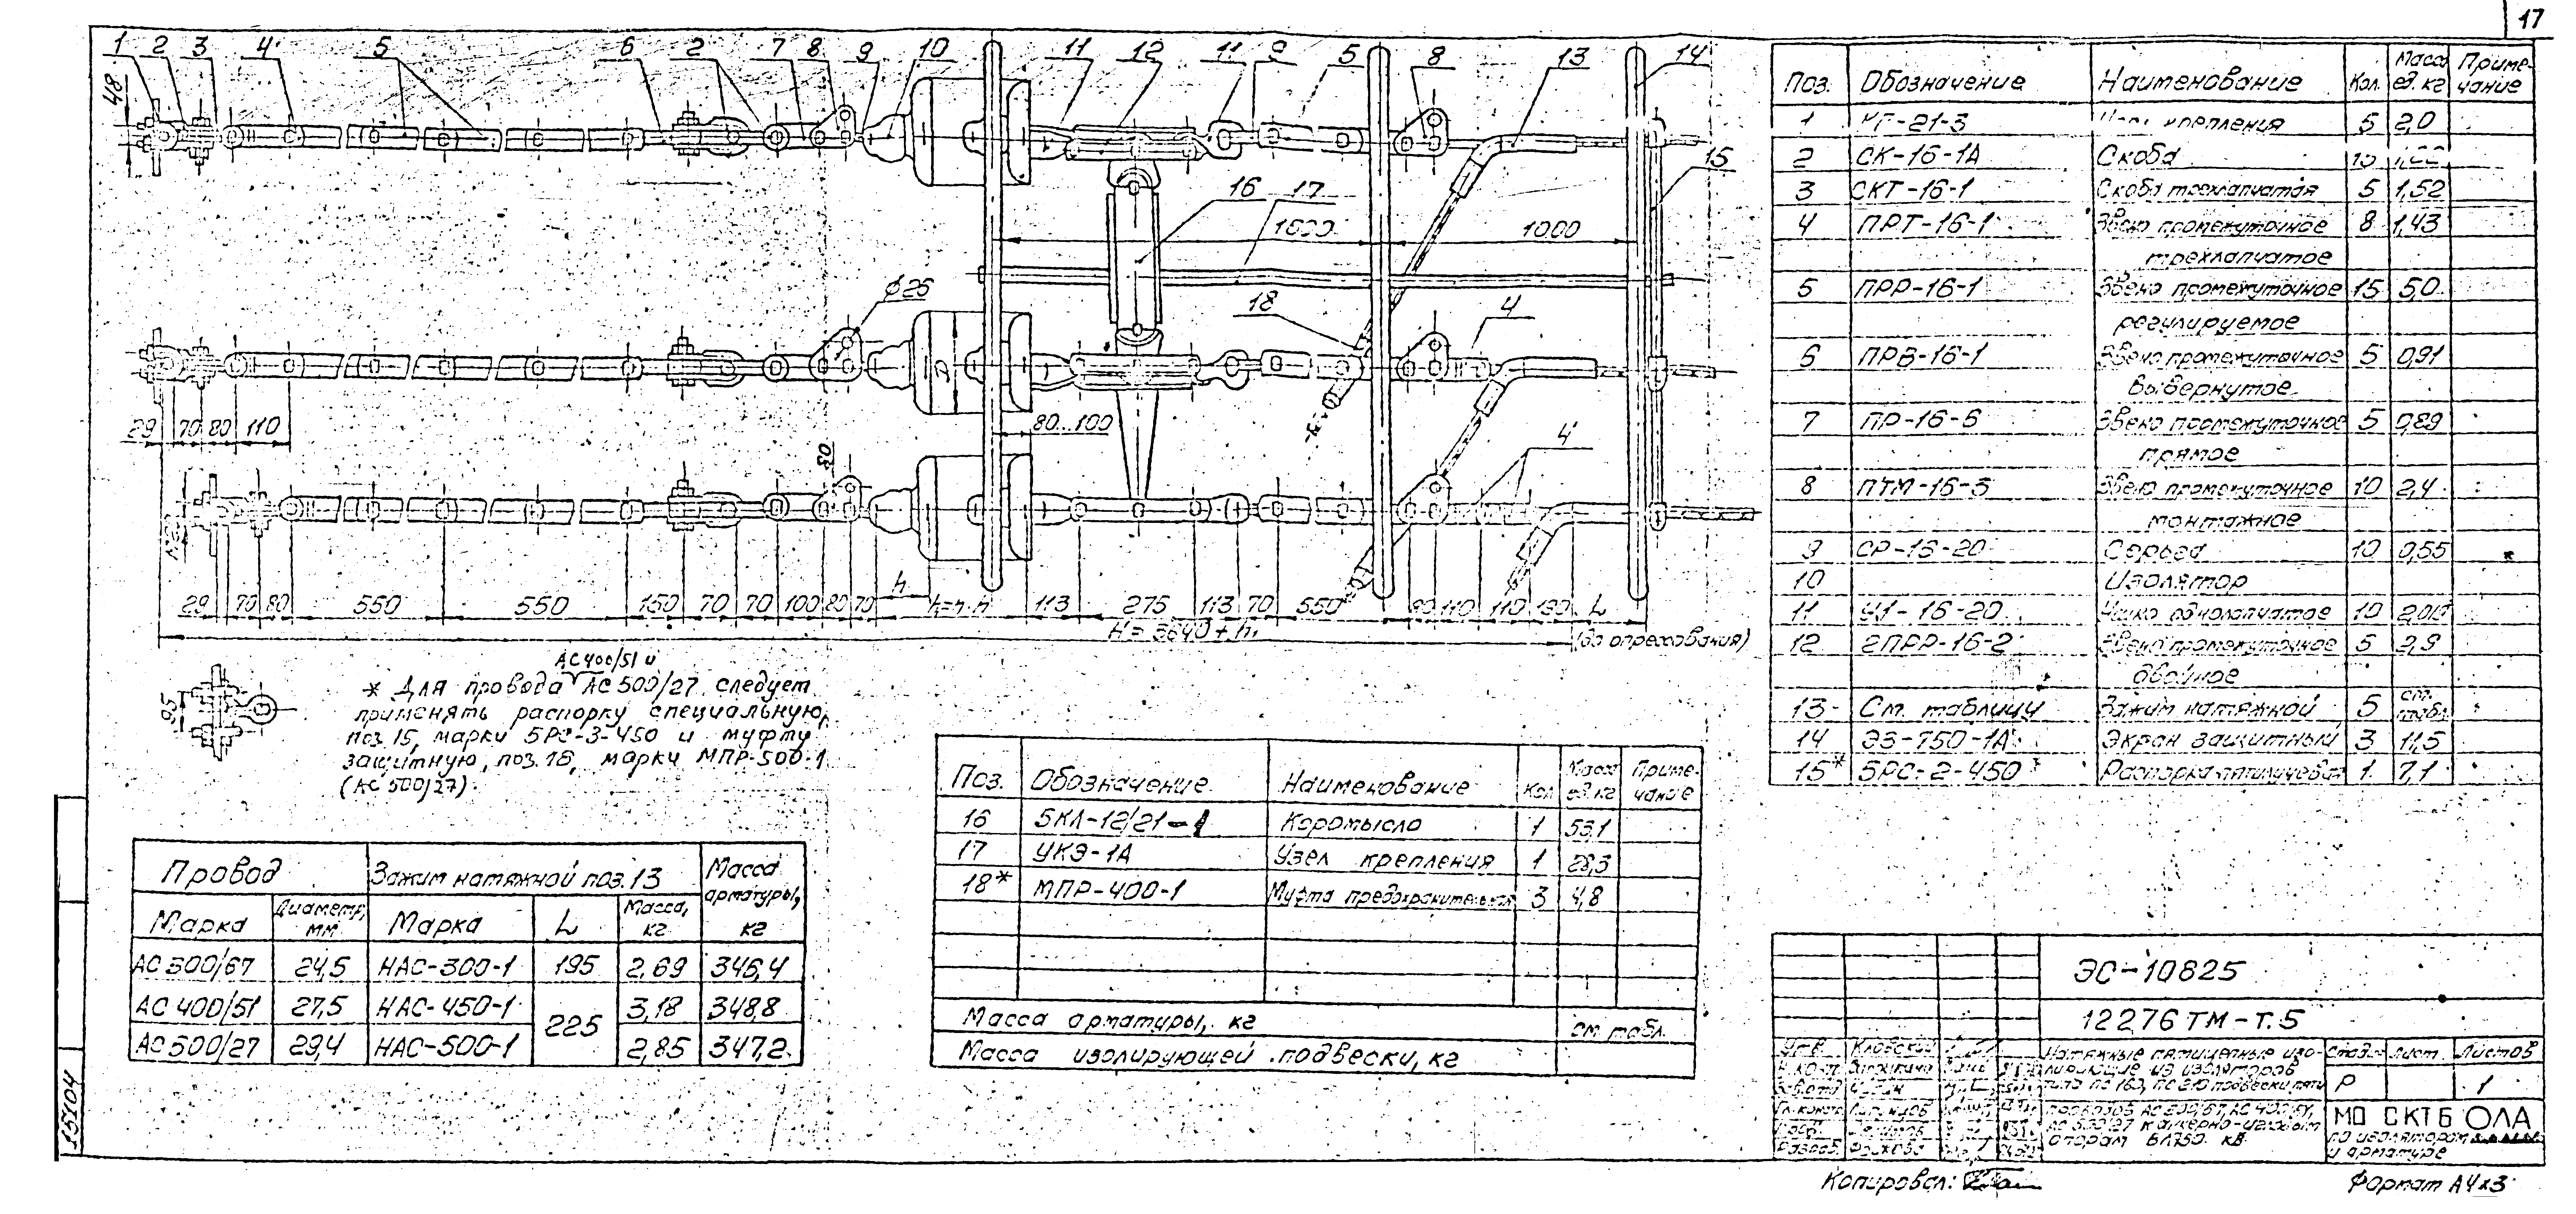 17
1 2 3 4 5 6 2 7 8 9 10 11 12 11 9 5 8 13 14
48
15
16 17
1000
1000
φ25
18
4
29 70 80 110
80...100
4
80
29 70 80 550 550 150 70 70 100 80 70 h 113 275 113 70 550 80 110 110 130 L
(до опрессования)
95
АС400/51 и
* Для провода АС500/27 следует
применять распорку специальную,
поз. 15, марки 5РС-3-450 и муфту
защитную, поз. 18, марки МПР-500-1
(АС500/27).
Провод Зажим натяжной поз.13 Масса арматуры, кг
Марка Диаметр, мм Марка L Масса, кг
АС300/67 24,5 НАС-300-1 195 2,69 346,4
АС400/51 27,5 НАС-450-1 225 3,18 348,8
АС500/27 29,4 НАС-500-1 2,85 347,2
Поз. Обозначение Наименование Кол Масса ед. кг Приме-чание
16 5КЛ-12/21-1 Коромысло 1 53,1
17 УКЭ-1А Узел крепления 1 28,3
18* МПР-400-1 Муфта предохранительная 3 4,8
Масса арматуры, кг см. табл.
Масса изолирующей подвески, кг
Поз. Обозначение Наименование Кол. Масса ед. кг Приме-чание
1 КГ-21-3 крепления 5 2,0
2 СК-16-1А Скоба
3 СКТ-16-1 Скоба трехлапчатая 5 1,52
4 ПРТ-16-1 Звено промежуточное 8 1,43
трехлапчатое
5 ПРР-16-1 Звено промежуточное 15 5,0
регулируемое
6 ПРВ-16-1 Звено промежуточное 5 0,91
вывернутое
7 ПР-16-6 Звено промежуточное 5 0,89
прямое
8 ПТМ-16-3 Звено промежуточное 10 2,4
монтажное
9 СР-16-20 Серьга 10 0,55
10 Изолятор
11 У1-16-20 Ушко однолапчатое 10
12 2ПРР-16-2 Звено промежуточное 5 2,9
двойное
13 См. таблицу Зажим натяжной 5 см. табл.
14 ЭЗ-750-1А Экран защитный 3 11,5
15* 5РС-2-450 Распорка пятилучевая 1 7,1
ЭС-10825
12276ТМ-Т.5
Натяжные пятицепные изо-
лирующие из изоляторов
типа ПС160, ПС210 подвески пяти
проводов АС300/67, АС400/51,
АС500/27 к анкерно-угловым
опорам ВЛ750 кВ
Стадия Лист Листов
Р 1
МО СКТБ ОЛА
по изоляторам
и арматуре
Разраб.
151104
Копировал:
Формат А4х3